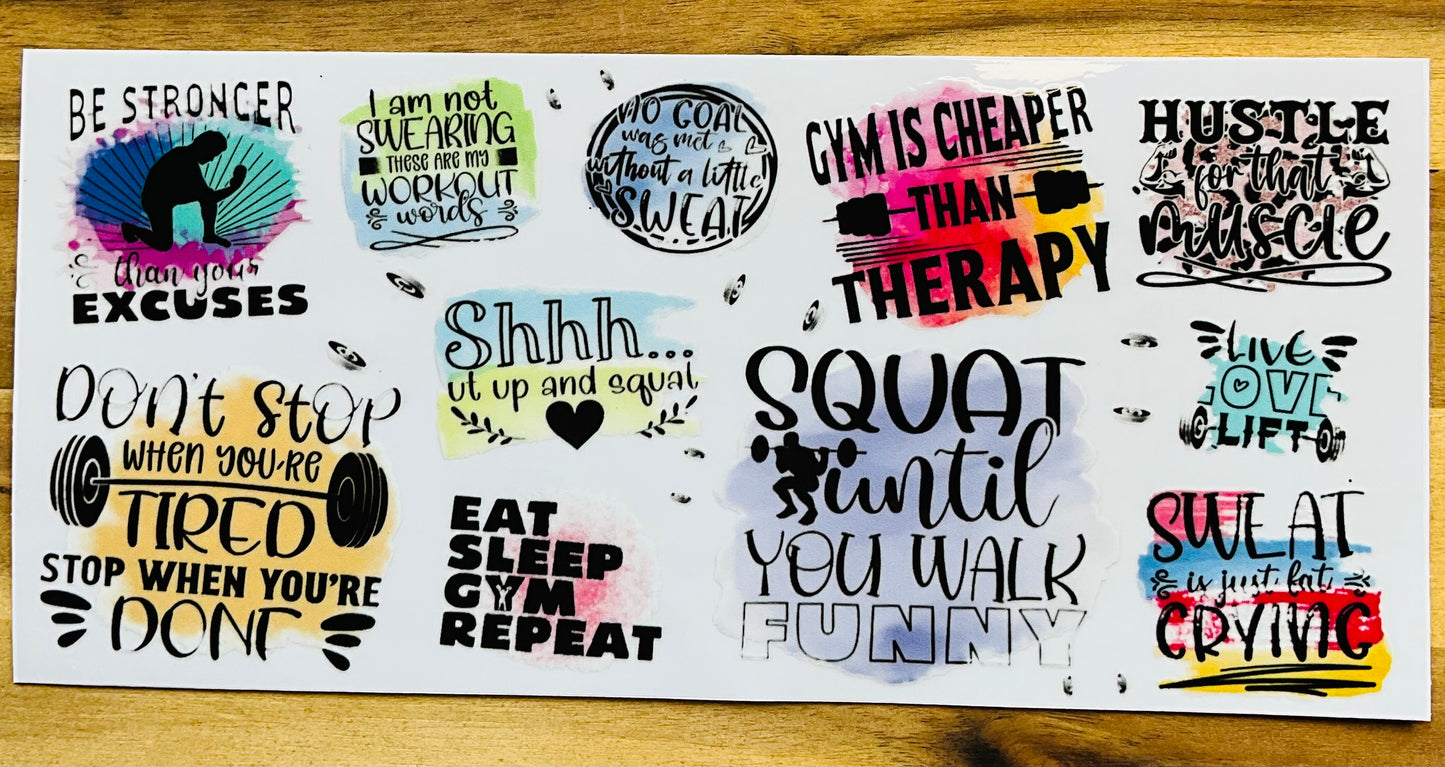 BE STRONGER
than your
EXCUSES
I am not
SWEARING
THESE ARE MY
WORKOUT
words
NO GOAL
was met
without a little
SWEAT
GYM IS CHEAPER
THAN
THERAPY
HUSTLE
for that
muscle
Shhh...
ut up and squat
DON't StOP
WHEN YOU'RE
TIRED
STOP WHEN YOU'RE
DONE
EAT
SLEEP
GYM
REPEAT
SQUAT
until
YOU WALK
FUNNY
LIVE
LOVE
LIFT
SWEAT
is just fat
CRYING